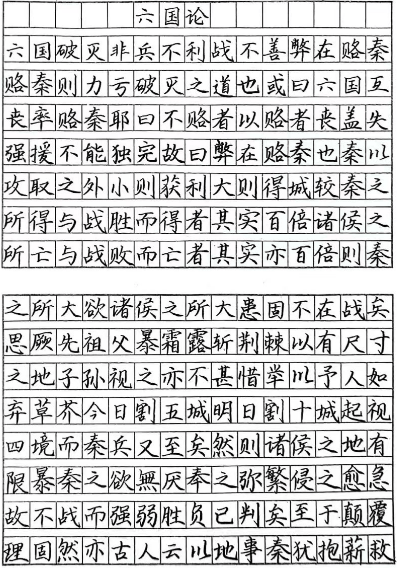 六国论
六国破灭非兵不利战不善弊在赂秦
赂秦则力亏破灭之道也或曰六国互
丧率赂秦耶曰不赂者以赂者丧盖失
强援不能独完故曰弊在赂秦也秦以
攻取之外小则获利大则得城较秦之
所得与战胜而得者其实百倍诸侯之
所亡与战败而亡者其实亦百倍则秦
之所大欲诸侯之所大患固不在战矣
思厥先祖父暴霜露斩荆棘以有尺寸
之地子孙视之亦不甚惜举以予人如
弃草芥今日割五城明日割十城起视
四境而秦兵又至矣然则诸侯之地有
限暴秦之欲無厌奉之弥繁侵之愈急
故不战而强弱胜负已判矣至于颠覆
理固然亦古人云以地事秦犹抱薪救